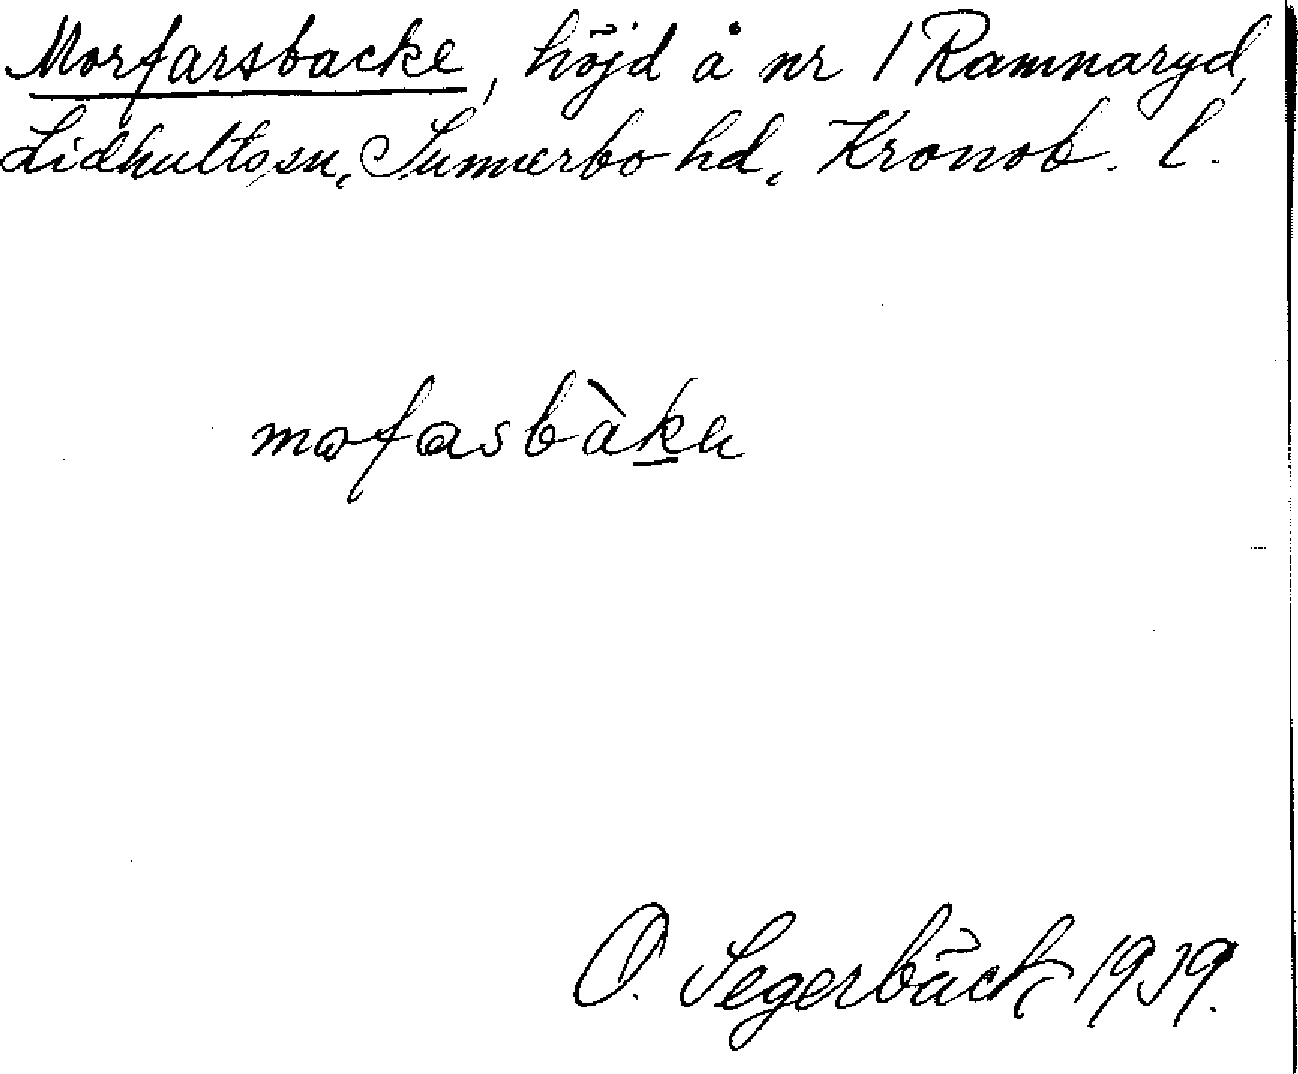 Morfarsbacke, höjd å nr 1 Ramnaryd,
Lidhults sn, Sunnerbo hd, Kronob. l.
mofasbàka
O. Segerbäck 1939.